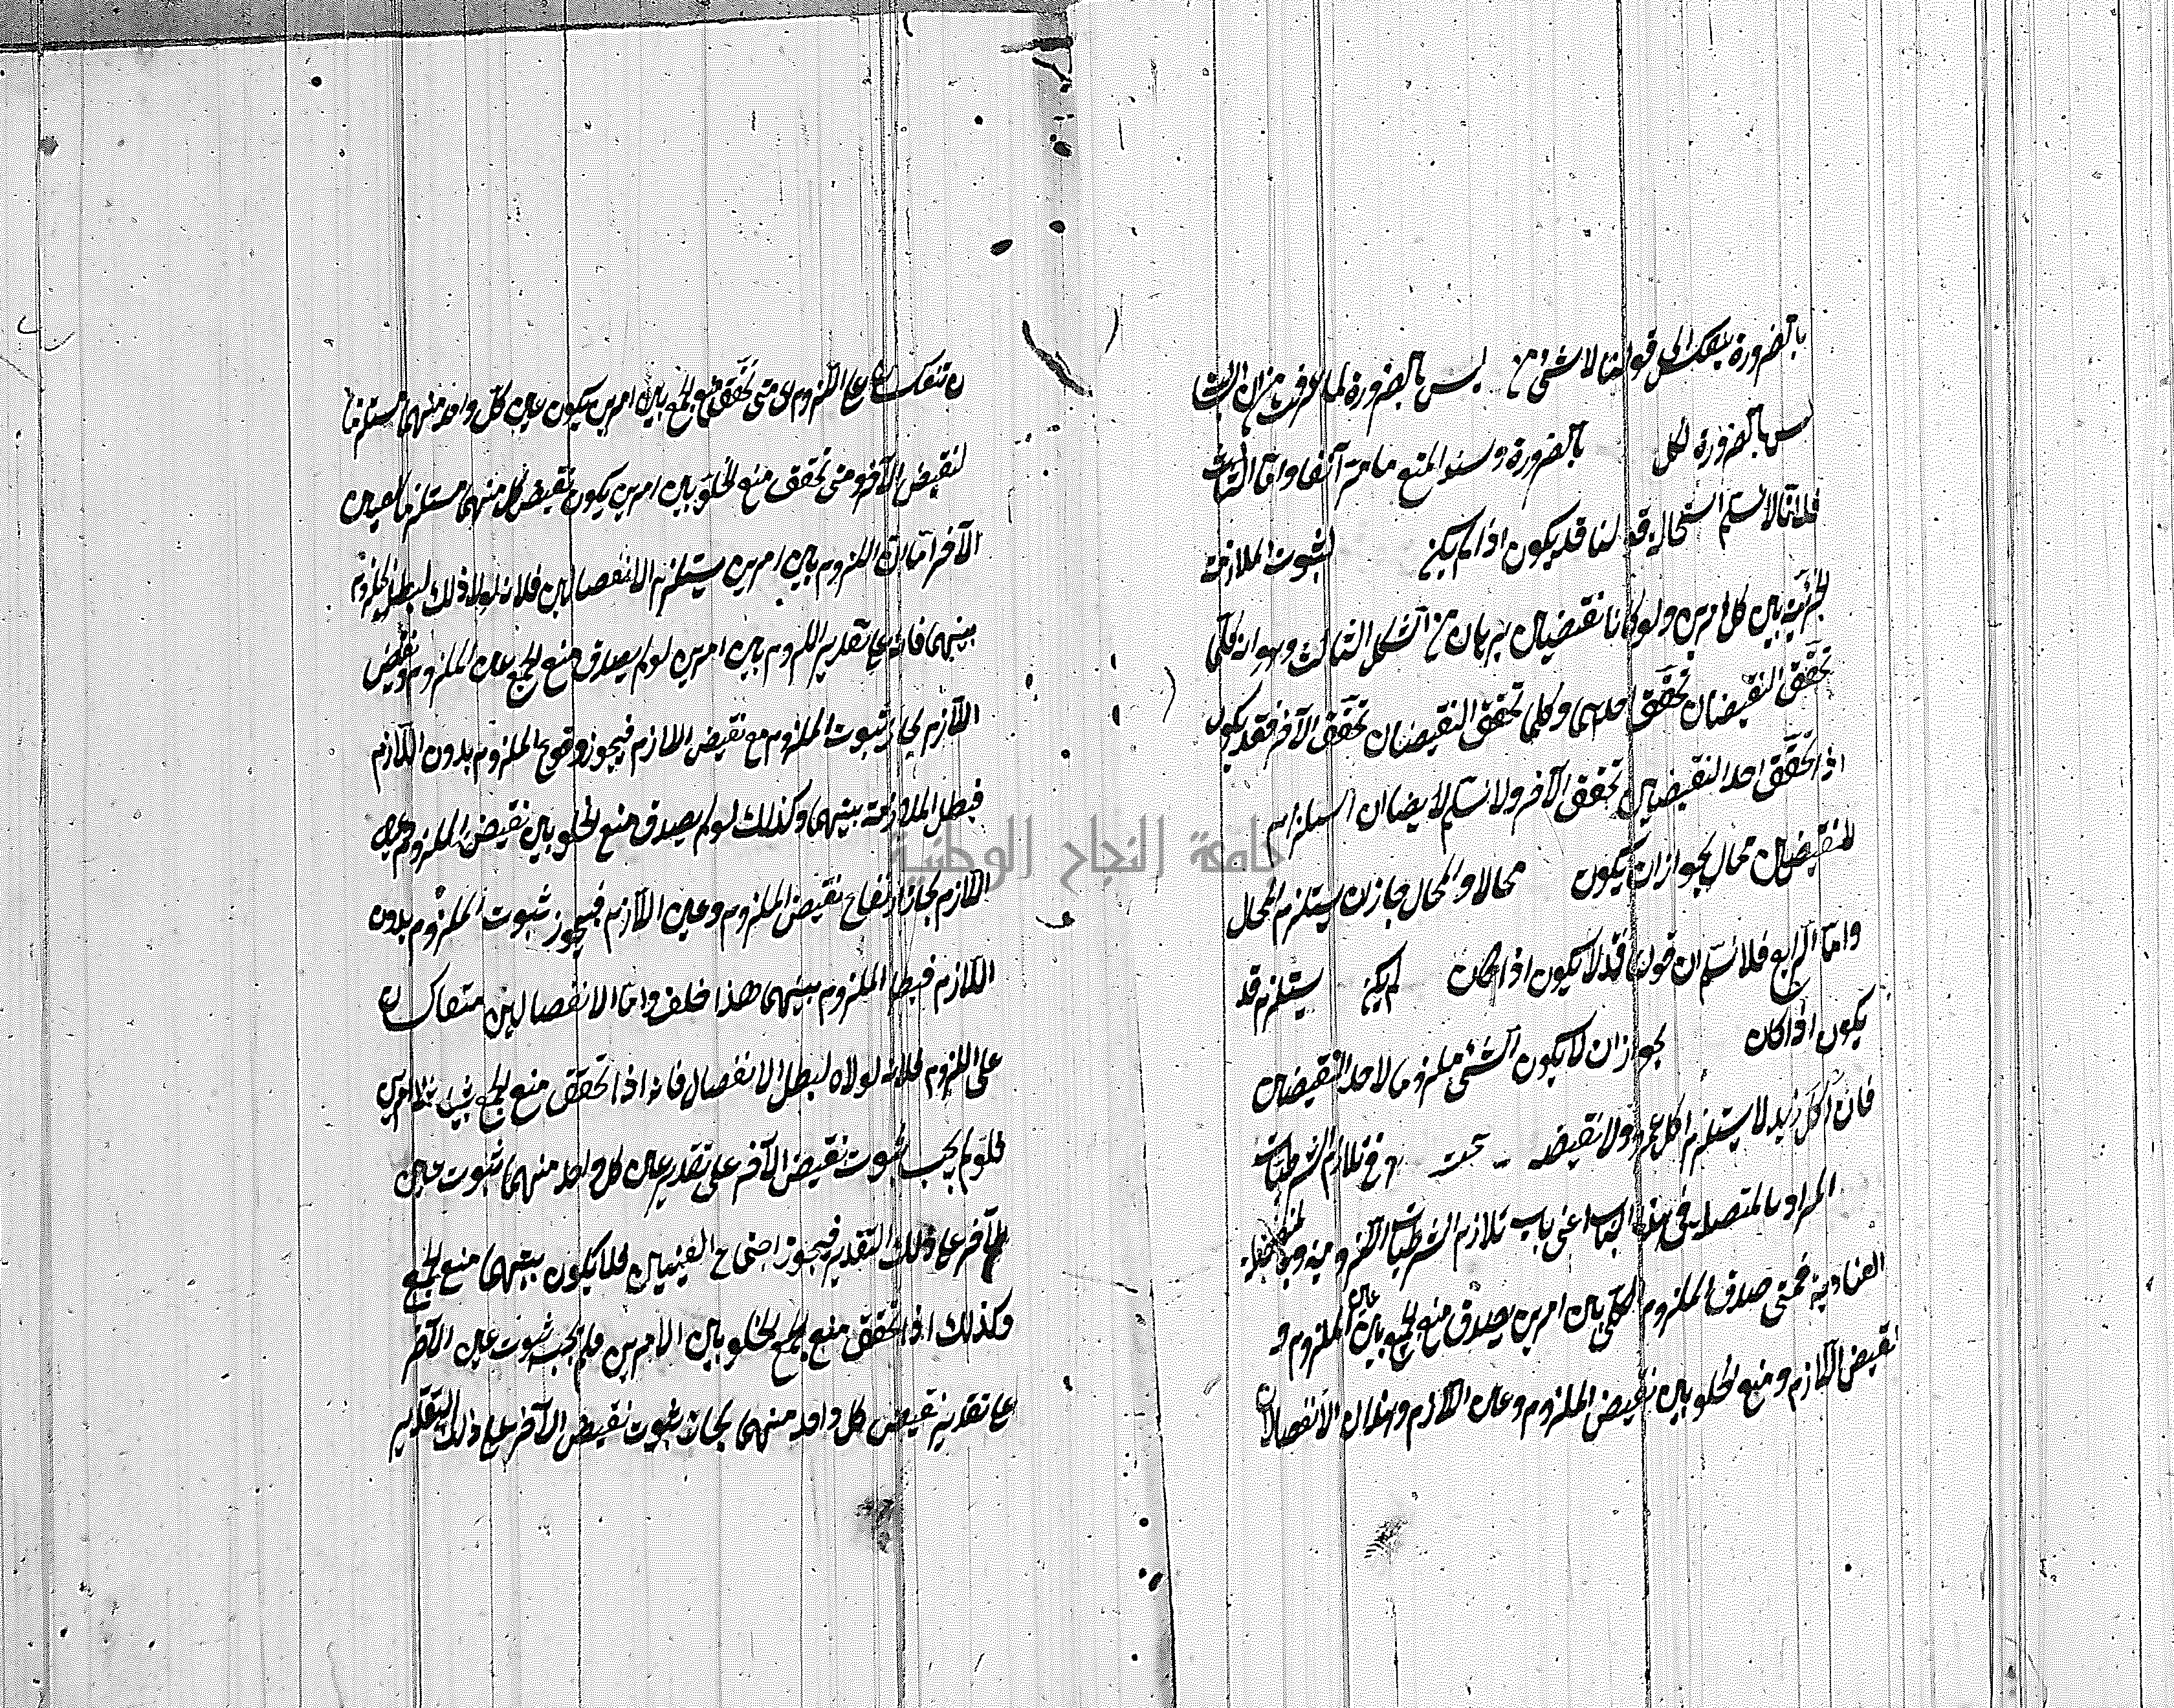 بالضرورة ينعكس الى قولنا لا شئ من ليس بالضرورة لما عرفت من ان السا
ليس بالضرورة لكل بالضرورة وسند المنع ما مر آنفا واما الثالث
فلانا لا نسلم استحالة قولنا قد يكون اذا لم يكن لثبوت الملازمة
الجزئية بين كل امرين ولو كانا نقيضين ببرهان من الشكل الثالث وهو انه كلما
تحقق النقيضان تحقق احدهما وكلما تحقق النقيضان تحقق الآخر فقد يكون
اذا تحقق احد النقيضين تحقق الآخر ولا نسلم ايضا ان استلزام
للنقيضين محال لجواز ان يكون محالا والمحال جاز ان يستلزم المحال
واما الرابع فلا نسلم ان قولنا قد لا يكون اذا كان لم يكن يستلزم قد
يكون اذا كان لجواز ان لا يكون الشئ ملزوما لاحد النقيضين
فان اكل زيد لا يستلزم اكل عمرو ولا نقيضه تمت في تلازم الشرطيات
المراد بالمتصلة في هذا الباب اعنى باب تلازم الشرطيات اللزومية وبالمنفصلة
العنادية فمتى صدق الملزوم الكلى بين امرين يصدق منع الجمع بين عين الملزوم و
نقيض اللازم ومنع الخلو بين نقيض الملزوم وعين اللازم وهذان الانفصالان
متعاكسان على اللزوم اى متى تحقق منع الجمع بين امرين يكون عين كل واحد منهما مستلزما
لنقيض الآخر ومتى تحقق منع الخلو بين امرين يكون نقيض كل منهما مستلزما لعين
الآخر اما ان اللزوم بين امرين يستلزم الانفصالين فلانه لولا ذلك لبطل اللزوم
بينهما فانه على تقدير اللزوم بين امرين لو لم يصدق منع الجمع عين الملزوم ونقيض
اللازم لجاز ثبوت الملزوم مع نقيض اللازم فيجوز وقوع الملزوم بدون اللازم
فبطل الملازمة بينهما وكذلك لو لم يصدق منع الخلو بين نقيض الملزوم وعين
اللازم لجاز ارتفاع نقيض الملزوم وعين اللازم فيجوز ثبوت الملزوم بدون
اللازم فبطل الملزوم بينهما هذا خلف واما الانفصالين متعاكسان
على اللزوم فلانه لولاه لبطل الانفصال فانه اذا تحقق منع الجمع بين الامرين
فلو لم يجب ثبوت نقيض الآخر على تقدير عين كل واحد منهما ثبوت عين
الآخر على ذلك التقدير فيجوز اجتماع العينين فلا يكون بينهما منع الجمع
وكذلك اذا تحقق منع الجمع الخلو بين الامرين فلم يجب ثبوت عين الآخر
على تقدير نقيض كل واحد منهما لجاز ثبوت نقيض الآخر على ذلك التقدير
جامعة النجاح الوطنية